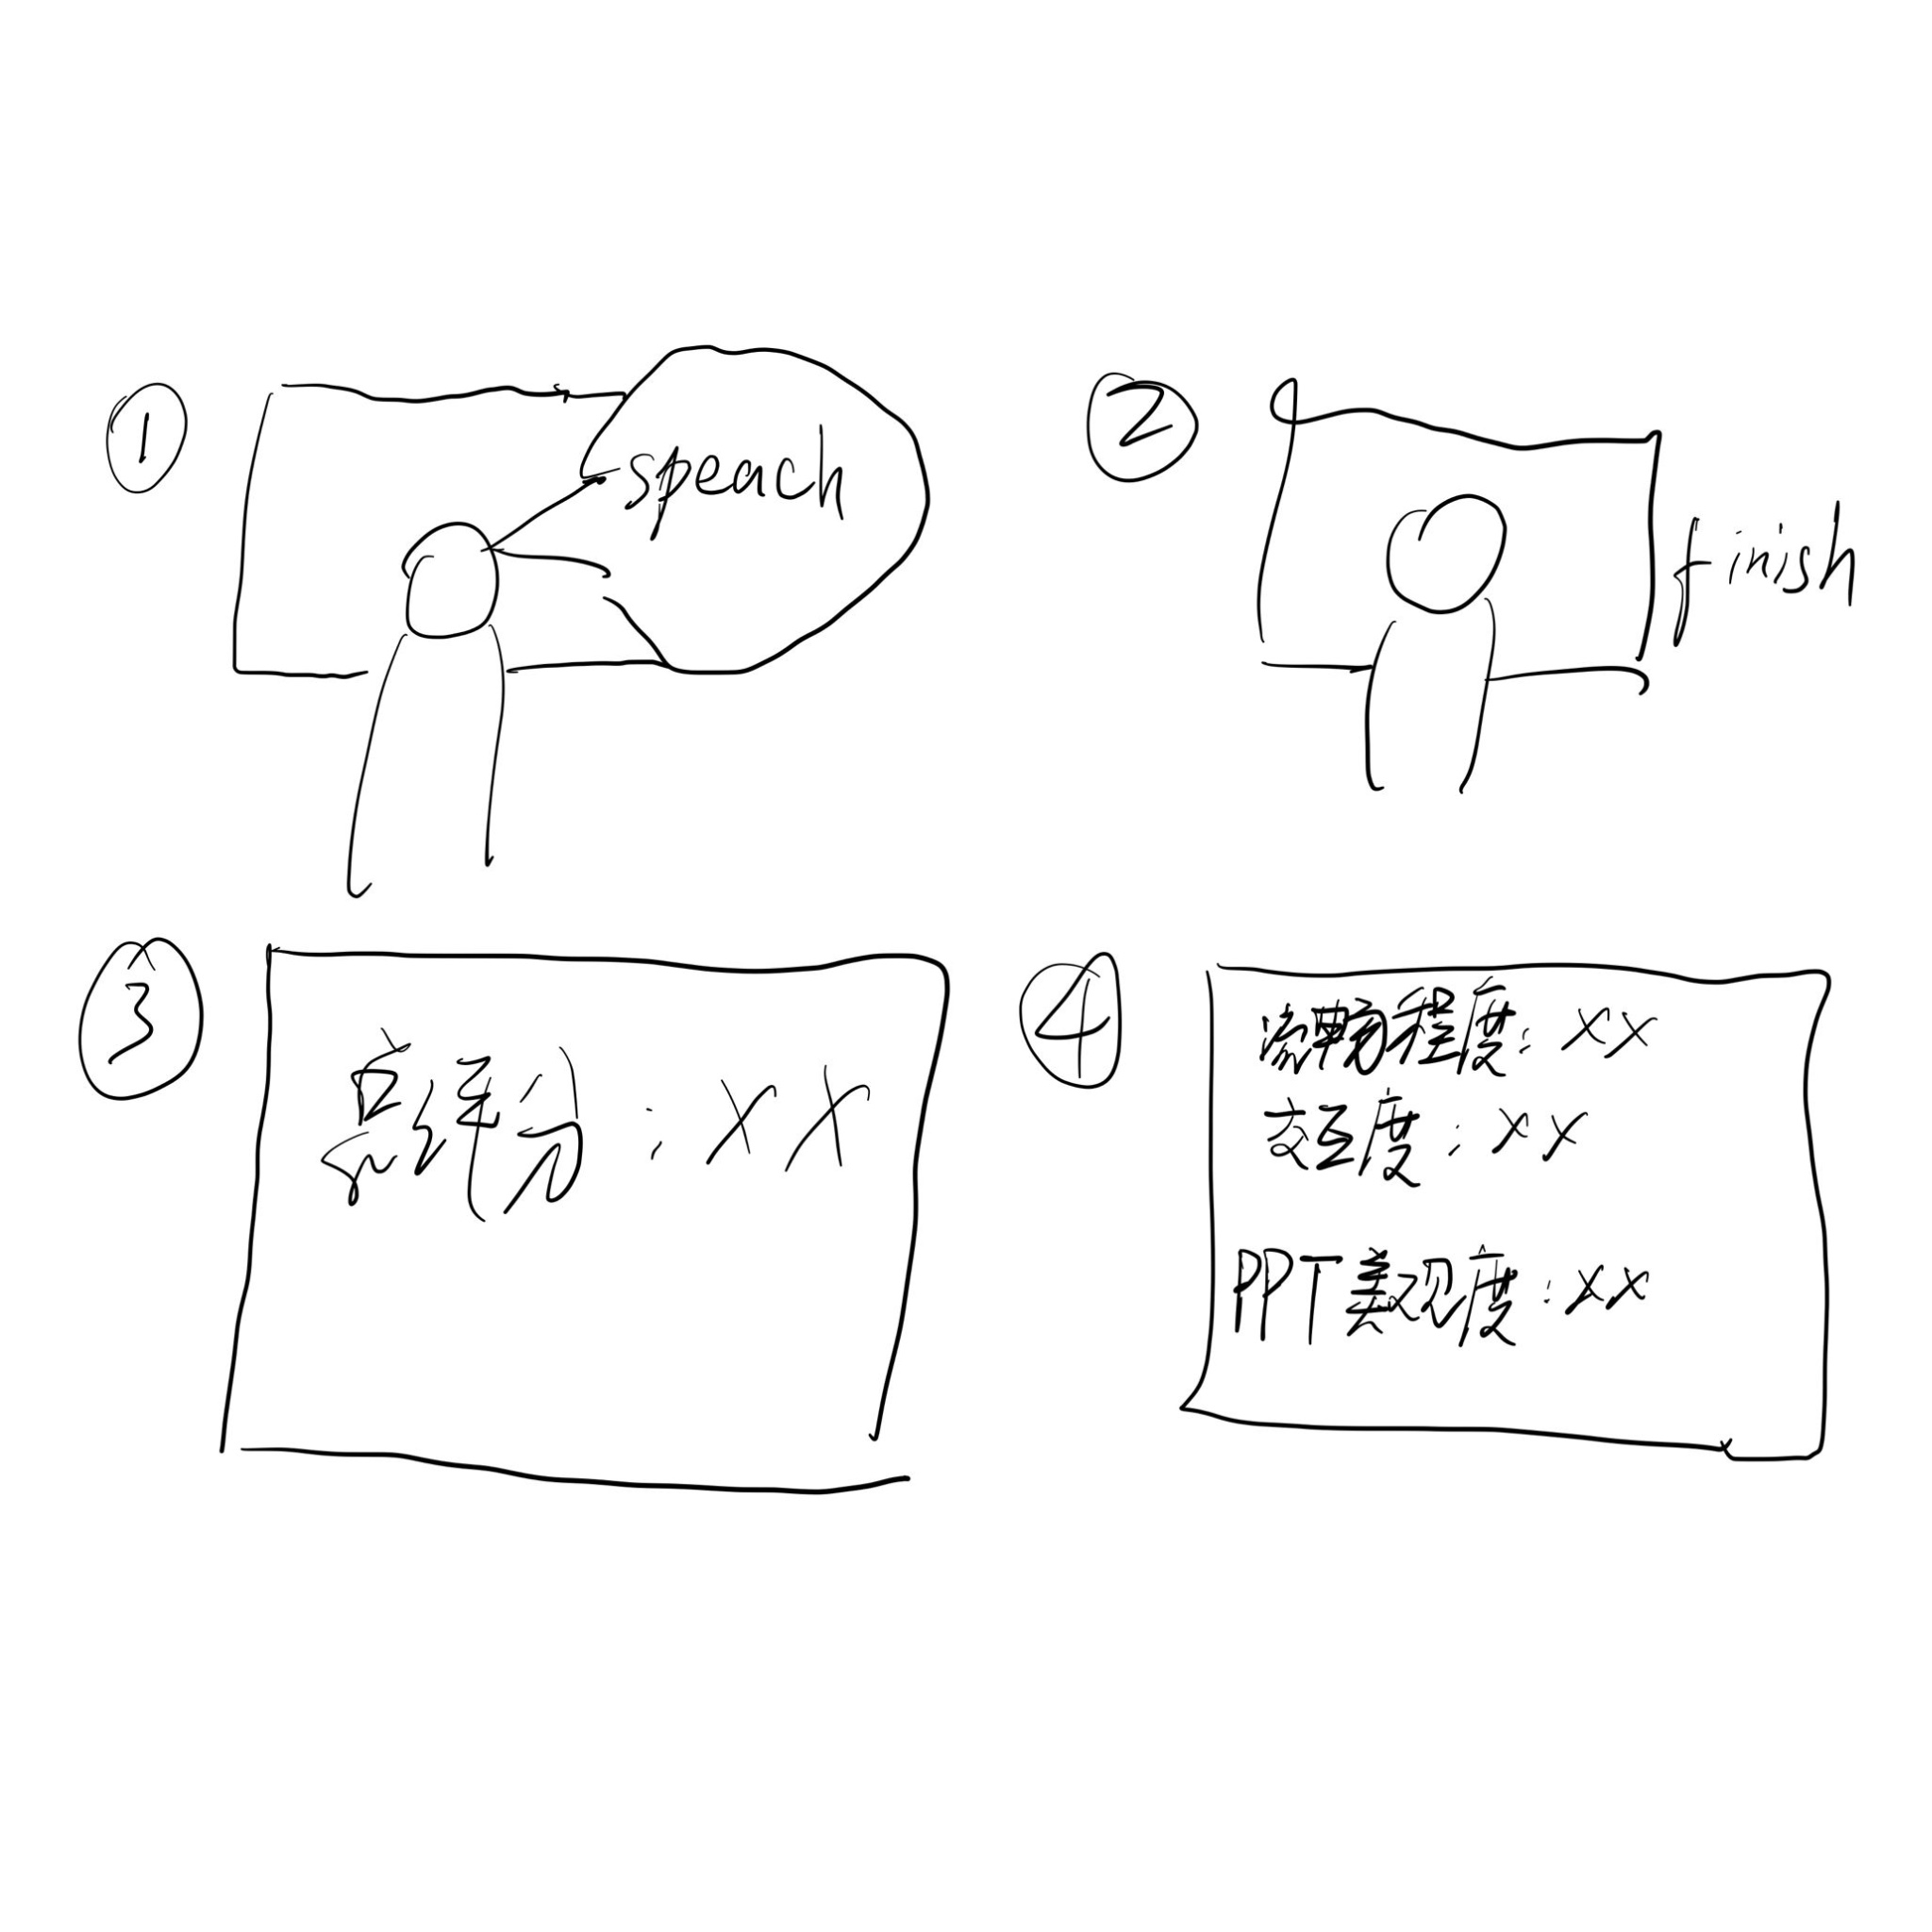 ①
speach
②
finish
③
总评分:xx
④
流畅程度:xx
交互度:xx
PPT美观度:xx